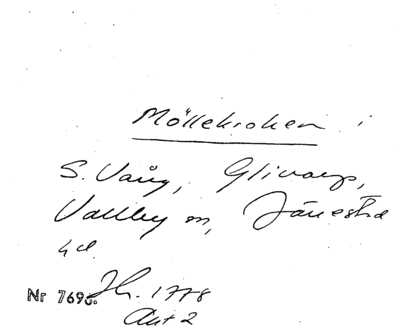 Möllekroken i
S. Vång, Glivarp,
Vallby sn, Järrestad
hd.
Nr 7690. Jh. 1778
Akt 2